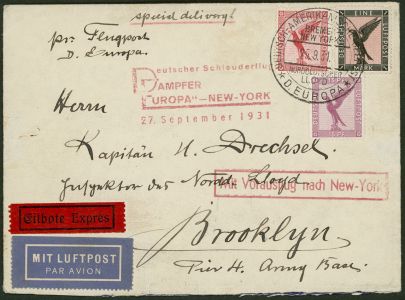 special delivery!
per Flugpost
D. Europa.
Deutscher Schleuderflug
DAMPFER
"EUROPA"-NEW-YORK
27. September 1931
EINE
MARK
LLOYD
D. EUROPA
Herrn
Kapitän H. Drechsel.
Inspektor des Nordd. Lloyd
Mit Vorausflug nach New-York
Brooklyn.
Pier 4. Army Base.
Eilbote Exprès
MIT LUFTPOST
PAR AVION